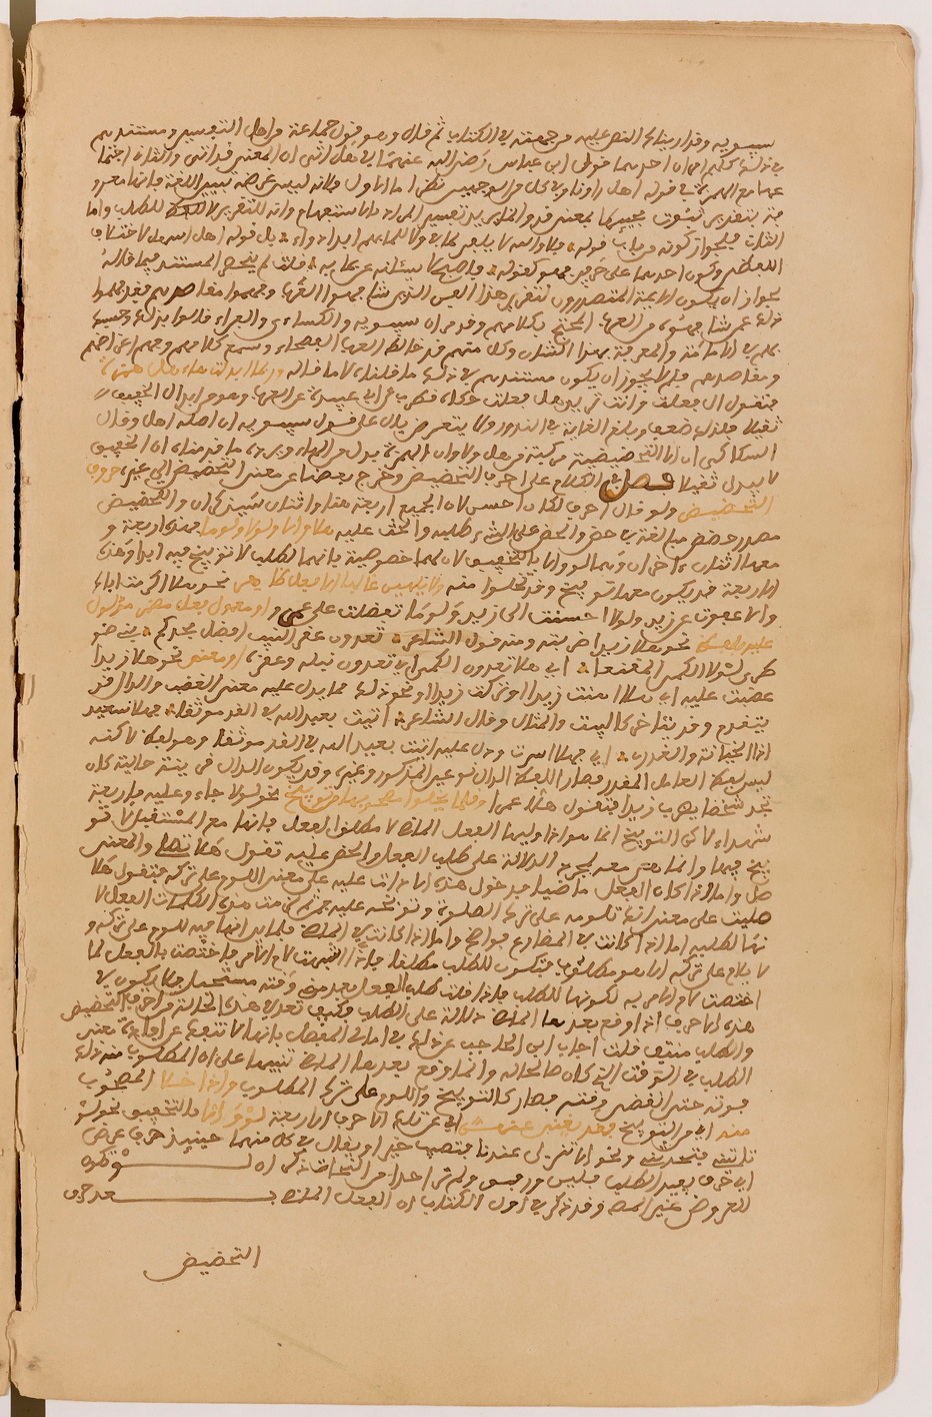 سيبويه وقد اريناك النص عليه من جهته في الكتاب ثم قال وهو قول جماعة من اهل التفسير ومستندهم
في ذلك كله امران احدهما قول ابن عباس رضي الله عنهما في هل اتى ان المعنى قد اتى والثاني اجتما
عها مع الهمزة في قوله اهل راونا وفي كل من الوجهين نظر اما الاول فلانه ليس غرضه تفسير اللغة
بمعنى قد وانما يريد تفسير المراد بالاستفهام وانه للتقرير لا للطلب واما
الثاني فيجوز كونه من باب قوله ولا والله لا يلفى لما بي ولا للما بهم ابدا دواء بل قوله اهل اسهل لاختلاف
اللفظين وكون احدهما على حرفين فهو كقوله فاصبح لا يسئلنه عن بما به قلت لم ينحصر المستند فيما قاله
لجواز ان يكون الائمة المتصدرون لتقرير هذا الفن الذين شافهوا العرب وفهموا مقاصدهم
ذلك عمن شافهوه من العرب المحتج بكلامهم وقد مر ان سيبويه والكسائي والفراء قالوا بذلك وحسبك
بهم في الامامة والمعرفة بهذا الشان وكل منهم قد خالط العرب الفصحاء وسمع كلامهم وفهم اغراضهم
ومقاصدهم فلم لا يجوز ان يكون مستندهم في ذلك ما قلناه لا ما قاله وربما ابدلت هاء هل همزة
فتقول ال فعلت وانت تريد هل فعلت حكاه قطرب عن ابي عبيدة عن العرب وهو من ابدال الخفيف
ثقيلا فلذلك ضعف وبلغ الغاية في الندور ولا يتعرض يدل على قول سيبويه ان اصله اهل وقال
السكاكي ان الا التحضيضية مركبة من هل ولا وان الهمزة بدل من الهاء ويرده ما قدمناه ان الخفيف
لا يبدل ثقيلا فصل في الكلام على احرف التحضيض وخروج بعضها عن معنى التحضيض الى غيره حروف
التحضيض ولو قال احرف لكان احسن لان الجميع اربعة هنا واثنان سيذكران والتحضيض
مصدر حضض مبالغة في حض والحض على الشيء طلبه والحث عليه هلا والا ولولا ولوما فهذه اربعة و
معها اثنان اخران وهما لو والا بالتخفيف لان لهما خصوصية بانهما لطلب لا توبيخ فيه ابدا وهذه
الاربعة قد يكون معها توبيخ وقد تخلوا منه ولا يليهن غالبا الا فعل ظاهر نحو هلا اكرمت اباك
والا عفوت عن زيد ولولا احسنت الى زيد ولوما تفضلت على عمرو او معمول فعل مضمر مدلول
عليه بالفظ نحو هلا زيدا ضربته ومنه قول الشاعر تعدون عقر النيب افضل مجدكم بني ضو
طرى لولا الكمي المقنعا اي هلا تعدون الكمي اي تعدون نيله وعقره او معنى نحو هلا زيدا
غضبت عليه اي هلا اهنت زيدا او تركت زيدا ونحو ذلك مما يدل عليه معنى الغضب والدال قد
يتقدم وقد يتاخر كالبيت والمثال وقال الشاعر اتيت بعبد الله في القد موثقا فهلا سعيد
اذا الخيانة والغدر اي فهلا اسرت ودل عليه اتيت بعبد الله في القد موثقا وهو لفظ لاكنه
ليس لفظ العامل المقدر فصار اللفظ الدال نوعين المذكور وغيره وقد يكون الدال قرينة حالية كان
تجد شخصا يضرب زيدا فتقول هلا عمرا وقلما يخلوا مصحوبها من توبيخ نحو لولا جاءو عليه باربعة
شهداء لاكن التوبيخ انما هو اذا وليها الفعل الماض لا مطلق الفعل فانها مع المستقبل لا تو
بيخ فيها وانما هي معه لمجرد الدلالة على طلب الفعل والحض عليه تقول هلا تصلي والمعنى
صل واما اذا كان الفعل ماضيا مدخول هذه الادوات عليه على معنى اللوم على تركه فتقول هلا
صليت على معنى انك تلومه على ترك الصلوة وتوبخه عليه فمن ثم كانت هذه الكلمات للفعل لا
نها لطلبه اما اذا كانت في المضارع فواضح واما اذا كانت في الماض فلما مر انها فيه للوم على تركه و
لا يلام على تركه الا هو مطلوب فتكون للطلب مطلقا فاذا اشبهت لام الامر فاختصت بالفعل كما
اختصت لام الامر به لكونها للطلب فاذا قلت طلب الفعل بعد مضي وقته مستحيل فلا يكون في
هذه الاحرف اذا وقع بعدها الماض دلالة على الطلب فكيف تعد في هذه الحالة من احرف التحضيض
والطلب منتف قلت اجاب ابن الحاجب عن ذلك في امالي المفصل بانها لا تنفك عن افادة معنى
الطلب في الوقت الذي كان صالحا له وانما وقع بعدها الماض تنبيها على ان المطلوب منه ذلك
فوته حتى انقضى وقته فصار كالتوبيخ واللوم على ترك المطلوب واذا خلا المصحوب
منه اي من التوبيخ فقد يغني عنهن اي عن تلك الاحرف الاربعة لو والا بالتخفيف نحو لو
تاتيني فتحدثني ونحو الا تنزل عندنا فتصيب خيرا ويقال في كل منهما حينيذ حرف عرض
اي حرف يفيد الطلب بلين ورفق ولم ار احدا من النحاة ذكر ان لو تكون
للعرض غير المصنف وقد ذكر في اول الكتاب ان الفعل الماض بعد حرف
التحضيض